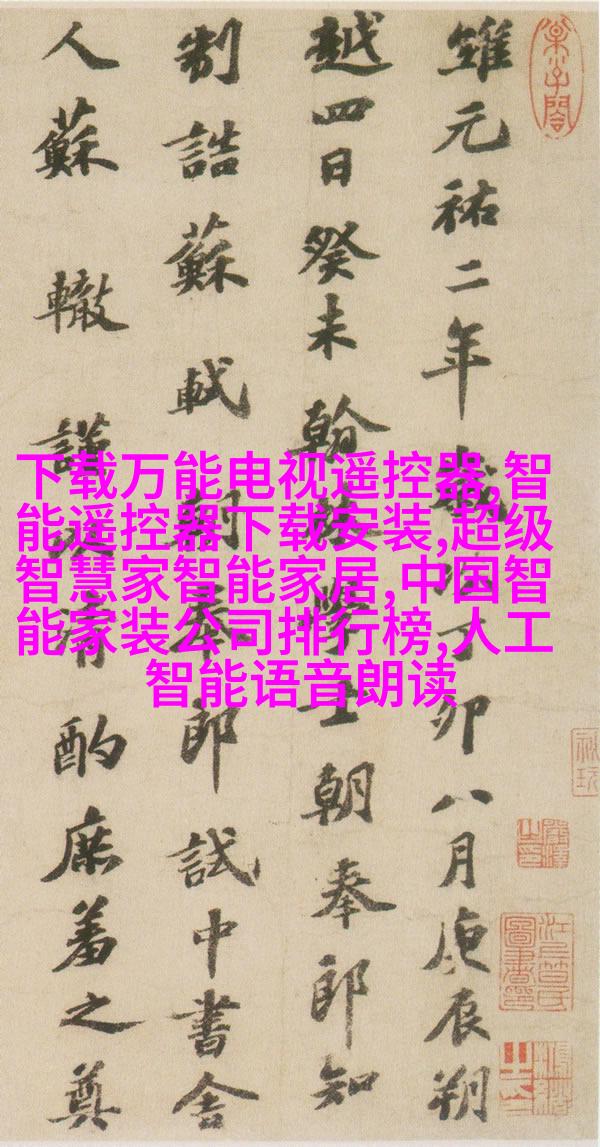 維元祐二年歲次丁卯八月庚辰朔
越四日癸未翰林學士朝奉郎知
制誥蘇軾朝奉郎試中書舍
人蘇轍謹以清酌庶羞之奠
下载万能电视遥控器,智
能遥控器下载安装,超级
智慧家智能家居,中国智
能家装公司排行榜,人工
智能语音朗读
江上笪氏
圖書印